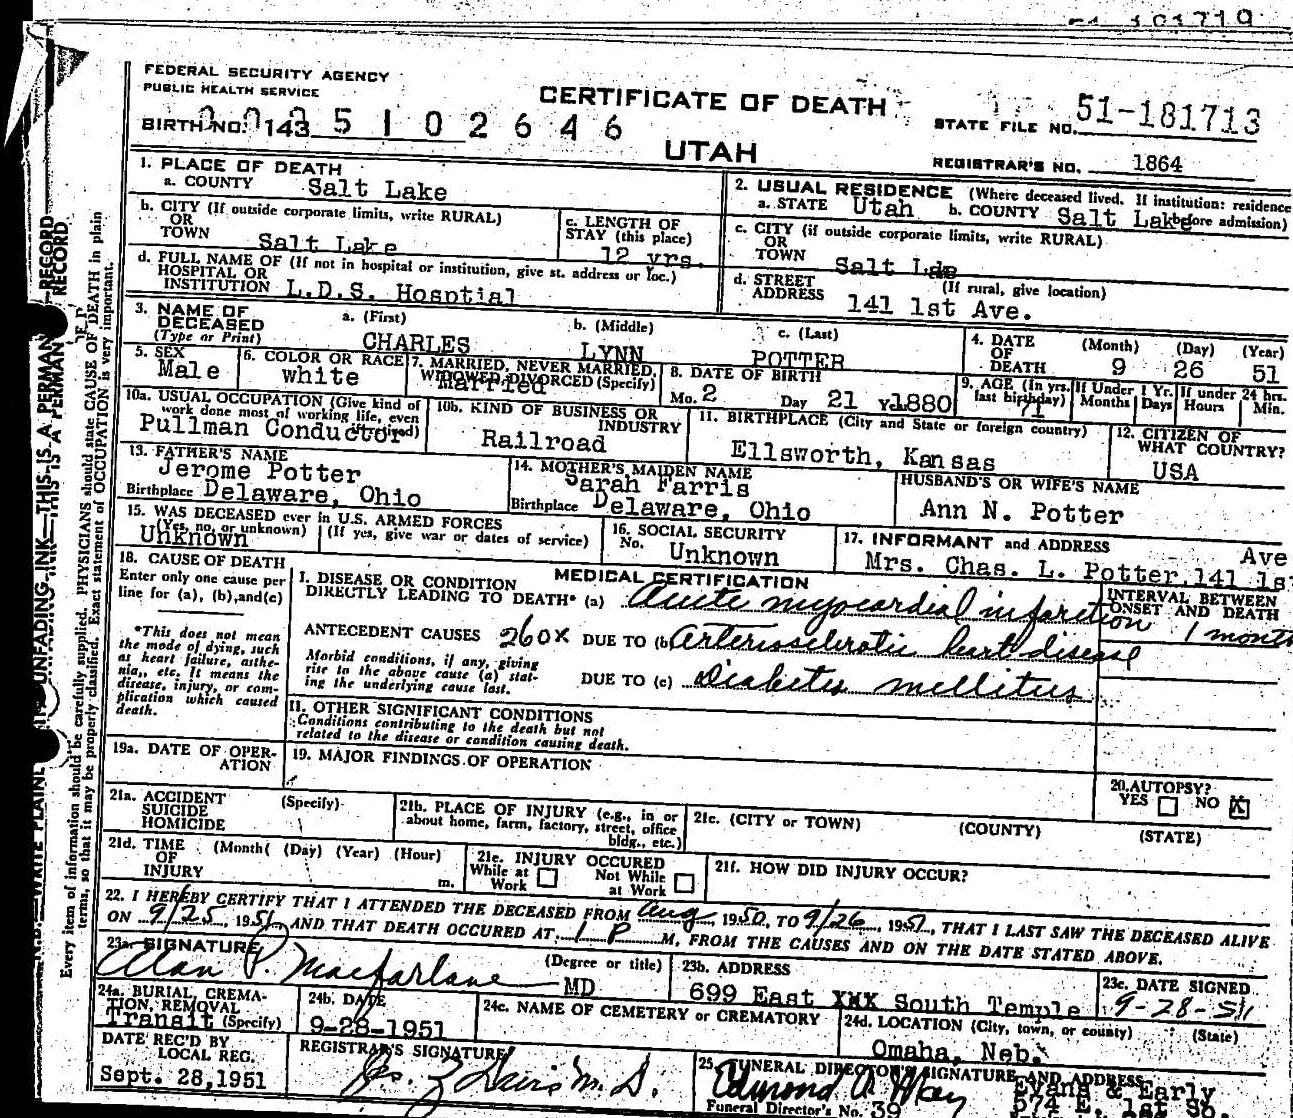 FEDERAL SECURITY AGENCY
PUBLIC HEALTH SERVICE
CERTIFICATE OF DEATH
STATE FILE NO. 51-181713
BIRTH NO. 143 5 1 0 2 6 4 6
UTAH
REGISTRAR'S NO. 1864
1. PLACE OF DEATH
a. COUNTY Salt Lake
2. USUAL RESIDENCE (Where deceased lived. If institution: residence before admission)
a. STATE Utah b. COUNTY Salt Lake
b. CITY (If outside corporate limits, write RURAL)
OR
TOWN Salt Lake
c. LENGTH OF
STAY (this place)
12 yrs.
c. CITY (if outside corporate limits, write RURAL)
OR
TOWN Salt Lde
d. FULL NAME OF (If not in hospital or institution, give st. address or loc.)
HOSPITAL OR
INSTITUTION L.D.S. Hosptial
d. STREET (If rural, give location)
ADDRESS 141 1st Ave.
3. NAME OF
DECEASED
(Type or Print)
a. (First) b. (Middle) c. (Last)
CHARLES LYNN POTTER
4. DATE
OF
DEATH
(Month) (Day) (Year)
9 26 51
5. SEX
Male
6. COLOR OR RACE
white
7. MARRIED, NEVER MARRIED,
WIDOWED, DIVORCED (Specify)
Married
8. DATE OF BIRTH
Mo. 2 Day 21 Yr. 1880
9. AGE (In yrs. last birthday)
71
If Under 1 Yr.
Months Days
If under 24 hrs.
Hours Min.
10a. USUAL OCCUPATION (Give kind of
work done most of working life, even
if retired)
Pullman Conductor
10b. KIND OF BUSINESS OR
INDUSTRY
Railroad
11. BIRTHPLACE (City and State or foreign country)
Ellsworth, Kansas
12. CITIZEN OF
WHAT COUNTRY?
USA
13. FATHER'S NAME
Jerome Potter
Birthplace Delaware, Ohio
14. MOTHER'S MAIDEN NAME
Sarah Farris
Birthplace Delaware, Ohio
HUSBAND'S OR WIFE'S NAME
Ann N. Potter
15. WAS DECEASED ever in U.S. ARMED FORCES
(Yes, no, or unknown) (If yes, give war or dates of service)
Unknown
16. SOCIAL SECURITY
No. Unknown
17. INFORMANT and ADDRESS
Ave
Mrs. Chas. L. Potter, 141 1st
18. CAUSE OF DEATH
Enter only one cause per
line for (a), (b), and (c)
*This does not mean
the mode of dying, such
as heart failure, asthe-
nia,, etc. It means the
disease, injury, or com-
plication which caused
death.
MEDICAL CERTIFICATION
I. DISEASE OR CONDITION
DIRECTLY LEADING TO DEATH* (a) Acute myocardial infarction
INTERVAL BETWEEN
ONSET AND DEATH
1 month
ANTECEDENT CAUSES 260X DUE TO (b) Arteriosclerotic heart disease
Morbid conditions, if any, giving
rise to the above cause (a) stat-
ing the underlying cause last.
DUE TO (c) Diabetes mellitus
II. OTHER SIGNIFICANT CONDITIONS
Conditions contributing to the death but not
related to the disease or condition causing death.
19a. DATE OF OPER-
ATION
19. MAJOR FINDINGS OF OPERATION
20. AUTOPSY?
YES NO X
21a. ACCIDENT (Specify)
SUICIDE
HOMICIDE
21b. PLACE OF INJURY (e.g., in or
about home, farm, factory, street, office
bldg., etc.)
21c. (CITY or TOWN) (COUNTY) (STATE)
21d. TIME (Month( (Day) (Year) (Hour)
OF
INJURY m.
21e. INJURY OCCURED
While at
Work
Not While
at Work
21f. HOW DID INJURY OCCUR?
22. I HEREBY CERTIFY THAT I ATTENDED THE DECEASED FROM Aug, 1950, TO 9/26, 1951, THAT I LAST SAW THE DECEASED ALIVE
ON 9/25, 1951, AND THAT DEATH OCCURED AT 1 P M, FROM THE CAUSES AND ON THE DATE STATED ABOVE.
23a. SIGNATURE (Degree or title)
Alan P. Macfarlane MD
23b. ADDRESS
699 East XXX South Temple
23c. DATE SIGNED
9-28-51
24a. BURIAL, CREMA-
TION, REMOVAL
(Specify)
Transit
24b. DATE
9-28-1951
24c. NAME OF CEMETERY or CREMATORY
24d. LOCATION (City, town, or county) (State)
Omaha, Neb.
DATE REC'D BY
LOCAL REG.
Sept. 28, 1951
REGISTRAR'S SIGNATURE
Davis M.D.
25. FUNERAL DIRECTOR'S SIGNATURE AND ADDRESS
Edmond Evans & Early
Funeral Director's No. 39
Every item of information should be carefully supplied. PHYSICIANS should state CAUSE OF DEATH in plain
terms, so that it may be properly classified. Exact statement of OCCUPATION is very important.